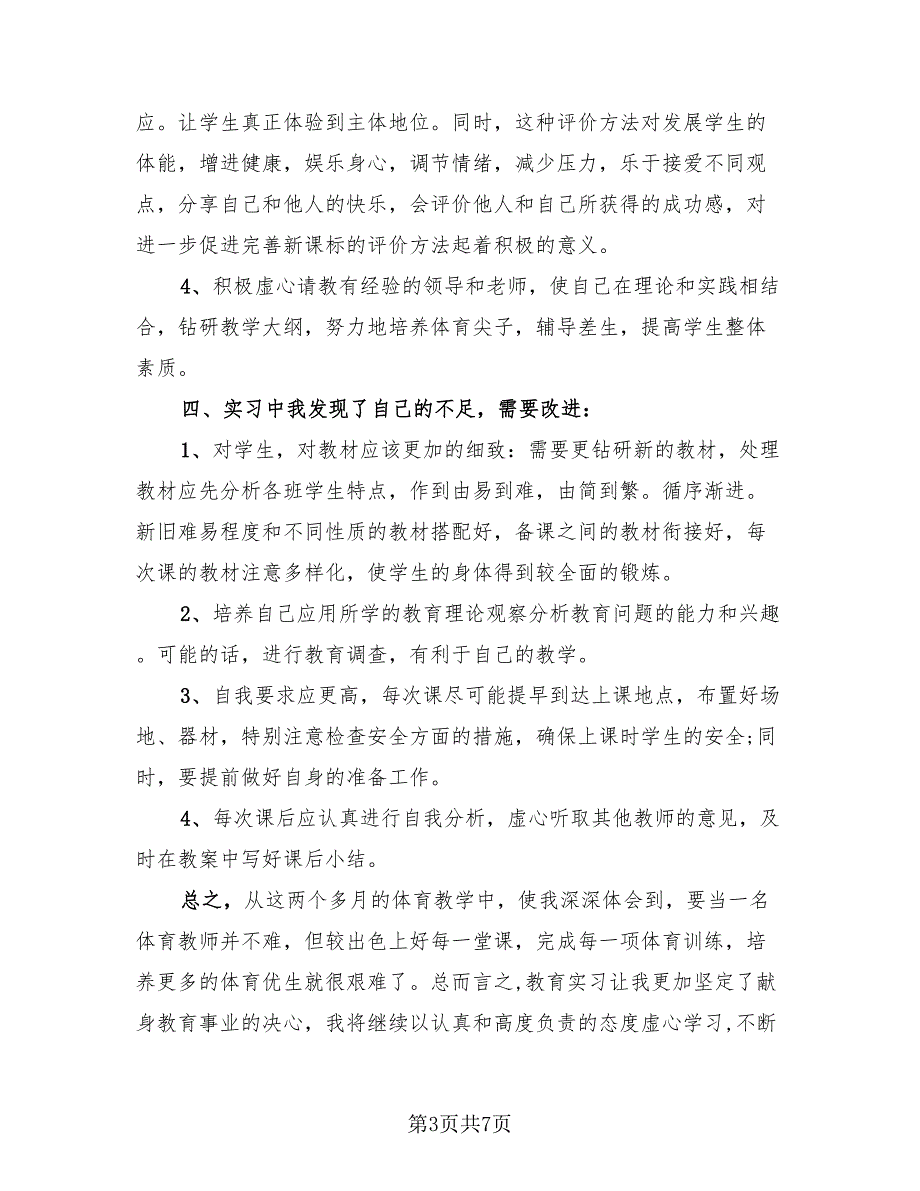 应。让学生真正体验到主体地位。同时，这种评价方法对发展学生的
体能，增进健康，娱乐身心，调节情绪，减少压力，乐于接爱不同观
点，分享自己和他人的快乐，会评价他人和自己所获得的成功感，对
进一步促进完善新课标的评价方法起着积极的意义。
4、积极虚心请教有经验的领导和老师，使自己在理论和实践相结
合，钻研教学大纲，努力地培养体育尖子，辅导差生，提高学生整体
素质。
四、实习中我发现了自己的不足，需要改进：
1、对学生，对教材应该更加的细致：需要更钻研新的教材，处理
教材应先分析各班学生特点，作到由易到难，由简到繁。循序渐进。
新旧难易程度和不同性质的教材搭配好，备课之间的教材衔接好，每
次课的教材注意多样化，使学生的身体得到较全面的锻炼。
2、培养自己应用所学的教育理论观察分析教育问题的能力和兴趣
。可能的话，进行教育调查，有利于自己的教学。
3、自我要求应更高，每次课尽可能提早到达上课地点，布置好场
地、器材，特别注意检查安全方面的措施，确保上课时学生的安全;同
时，要提前做好自身的准备工作。
4、每次课后应认真进行自我分析，虚心听取其他教师的意见，及
时在教案中写好课后小结。
总之，从这两个多月的体育教学中，使我深深体会到，要当一名
体育教师并不难，但较出色上好每一堂课，完成每一项体育训练，培
养更多的体育优生就很艰难了。总而言之,教育实习让我更加坚定了献
身教育事业的决心，我将继续以认真和高度负责的态度虚心学习,不断
第3页共7页